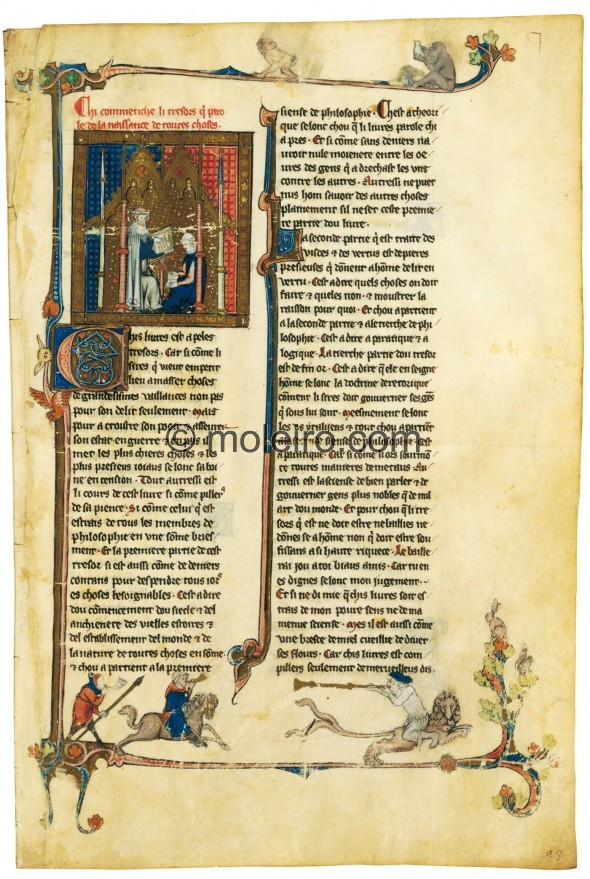 Chi commenche li tresors q̄ paro
le de la naissance de toutes choses.
Chis livres est apeles
tresors. Car si cōme li
sires q̄ vieut en petit
lieu amasser choses
de grandesismes vaillances non pas
pour son delit seulement. Mais
pour acroistre son pooir asseurer
son estat en guerre en pais il
met les plus chieres choses & les
plus presieus ioiaus selonc sa bo
ne entension. Tout autressi est
li cours de cest livre si cōme
de sapience. Si cōme celui q̄ est
estrais de tous les membres de
philosophie en une sōme brief
ment. Et la premiere partie de cest
tresor si est aussi cōme de deniers
contans pour despendre tous iors
es choses besoignables. Cest a dire
dou cōmencement dou siecle & del
anchiene des vielles estoires &
del establissement del monde & de
la nature de toutes choses en sōme
& chou apartient a la premiere
siense de philosophie. Chest a theori
que selonc chou q̄ li livres parole chi
apres. Et si cōme sans deniers na
uroit nule moienete entre les oe
vres des gens q̄ adrechast les uns
contre les autres. Autressi ne puet
nus hom savoir des autres choses
plainement sil ne set ceste premie
re partie dou livre.
La seconde partie q̄ est traite des
visces & des vertus est de pieres
presieuses q̄ dōnent a hōme delit en
vertu. Cest a dire quels choses on doit
faire & queles non. & moustrer la
raisson pour quoi. Et chou apartient
a la seconde partie & a le tierche de phi
losophie. Cest a dire a pratique & a
logique. La tierche partie dou tresor
est de fin or. Cest a dire q̄ ele enseigne
hōme selonc la doctrine de retorique
coment li sires doit gouverner ses gens
q̄ sous lui sont. Meesmement selonc
les us ytaliiens & tout chou apartiēt
a la siense de philosophie cest
a pratique. Car si cōme li ors sourmō
te toutes manieres de metaus. Au
tressi est la siense de bien parler & de
gouverner gens plus nobles q̄ de nul
art dou monde. Et pour chou q̄ li tre
sors q̄ est ne doit estre ne bailliés ne
dōnes se a hōme non q̄ doit estre sou
fissans a si haute riquece. Le baille
rai iou a toi biaus amis. Car tu en
es dignes selonc mon jugement.
Et si ne di mie q̄ chis livres soit es
trais de mon povre sens ne de ma
nue sciense. Mes il est aussi cōme
une bresce de miel cueillie de diver
ses flours. Car chis livres est com
piliers seulement de merveilleus dis
© moleiro.com